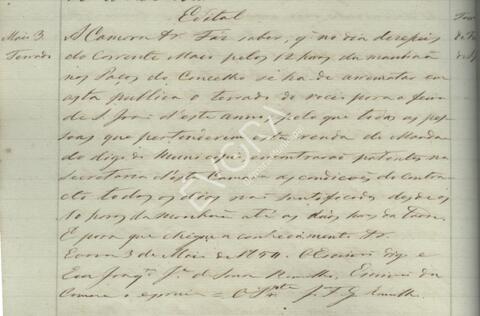 Edital
Maio 3 A Camara &c. Faz saber, q no dia dezeseis
Terrado do corrente Maio pelas 12 horas da manhaã
nos Paços do Concelho se ha de arrematar em
asta publica o terrado de rocio para a feira
de S. João d'este anno, pelo que todas as pes
soas que pertenderem esta renda
do digo de Municipio encontrarão patentes na
Secretaria d'esta Camara as condicoes do contra
cto todos os dias não santificados desde as
10 horas da manhaã até as duas horas da tarde.
E para que chegue a conhecimento &c.
Evora 3 de Maio de 1854. O Escrivão digo e
Eu Joaqm Je de Sousa Ramalho, Escrivão da
Camara o escrevi = O Prdte J. F. G. Ramalho.
EVORA